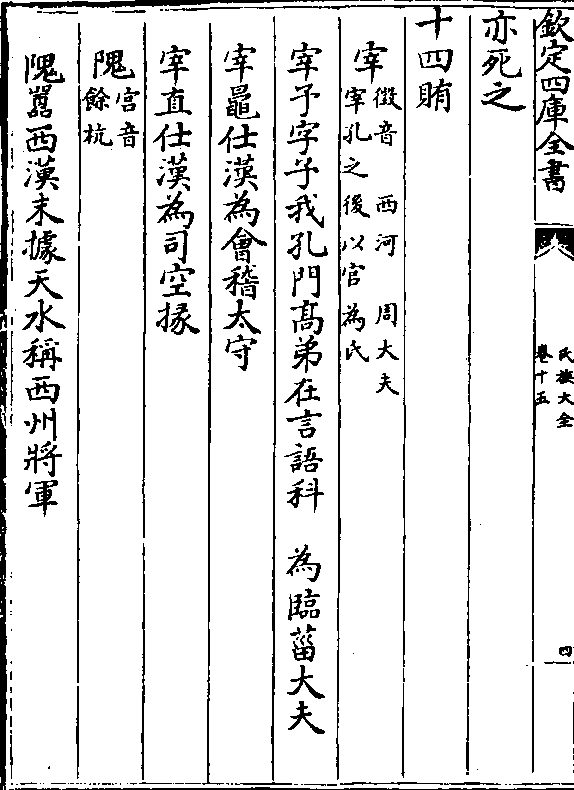 欽定四庫全書
氏族大全
卷十五
四
亦死之
十四賄
宰
徵音　西河　周大夫
宰孔之後以官為氏
宰予字子我孔門髙弟在言語科　為臨菑大夫
宰鼂仕漢為會稽太守
宰直仕漢為司空掾
隗
宫音
餘杭
隗囂西漢末據天水稱西州將軍